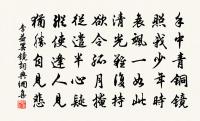 手中青銅鏡
照我少年時
衰颯一如此
清光難復持
欲令孤月掩
從遣半心疑
縱使逢人見
猶勝自見悲
李益罷鏡詞典網書